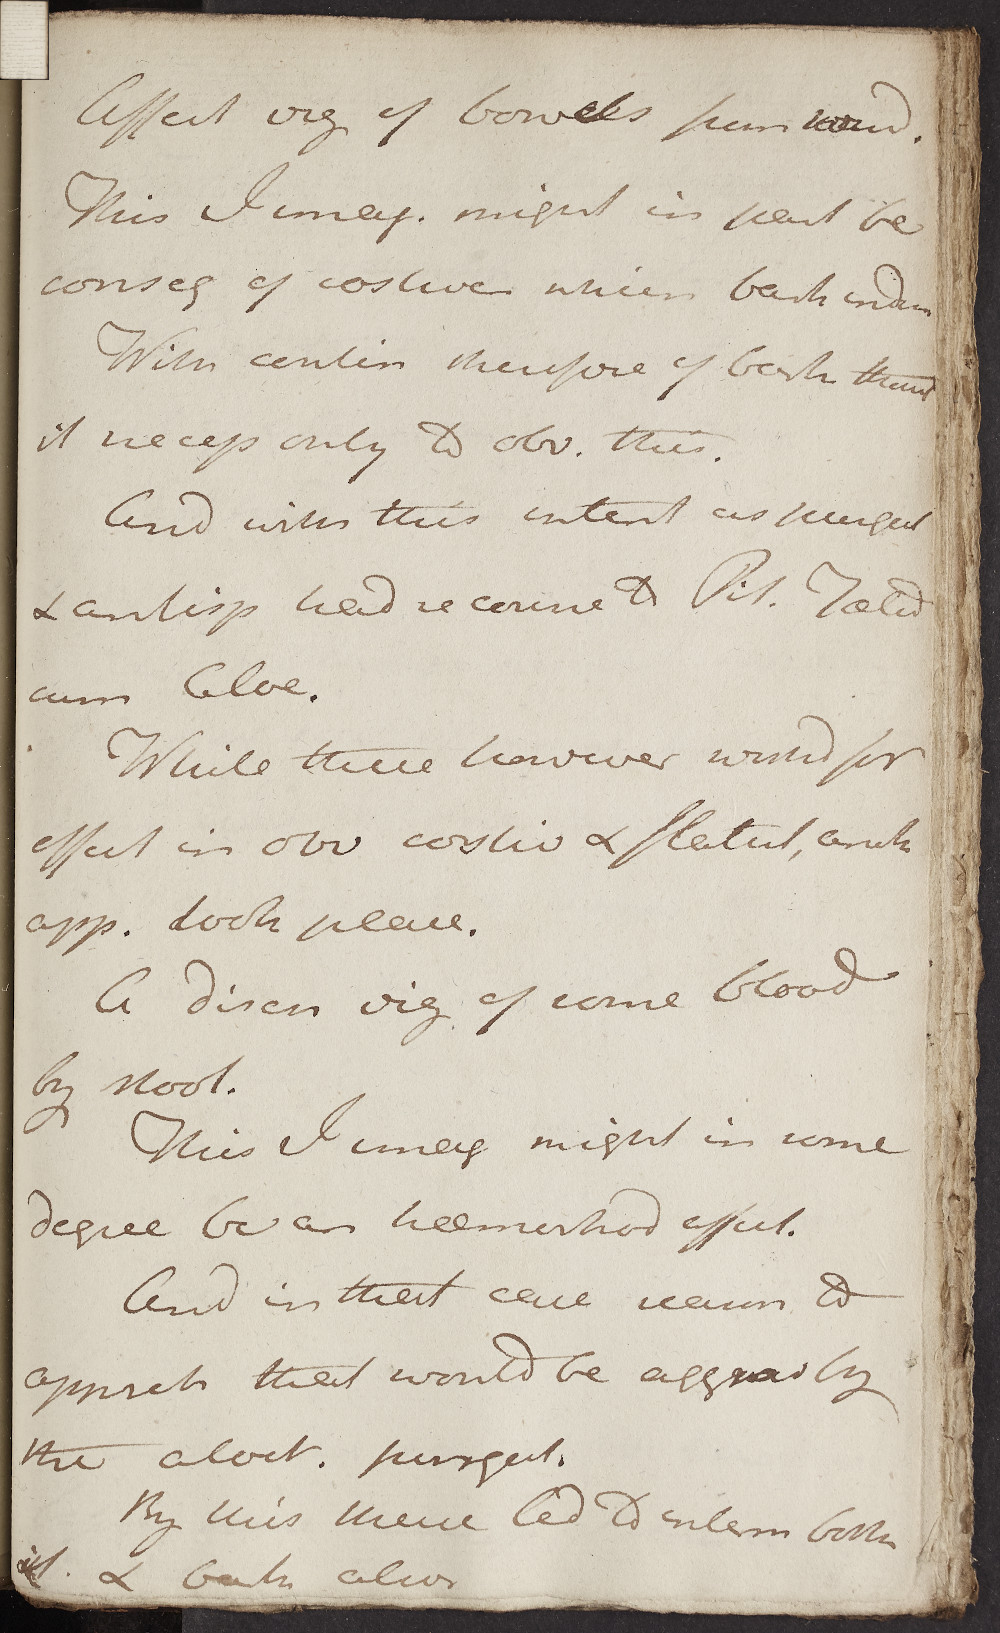 Affect viz of bowels from wind.
This I imag. might in part be
conseq of costiven which bark indu
With contin therefore of bark thought
it necess only to obv. this.
And with this intent as purgat
& antisp had recourse to Pil. Fœtid
cum Aloe.
While these however wished for
effect in obv costiv & flatul, anoth
app. took place.
A disch viz of some blood
by stool.
This I imag might in some
degree be an hæmorrhod effect.
And in that case reason to
appreh that would be aggrav by
the aloet. purgat.
By this there led to interm both
it. & bark also